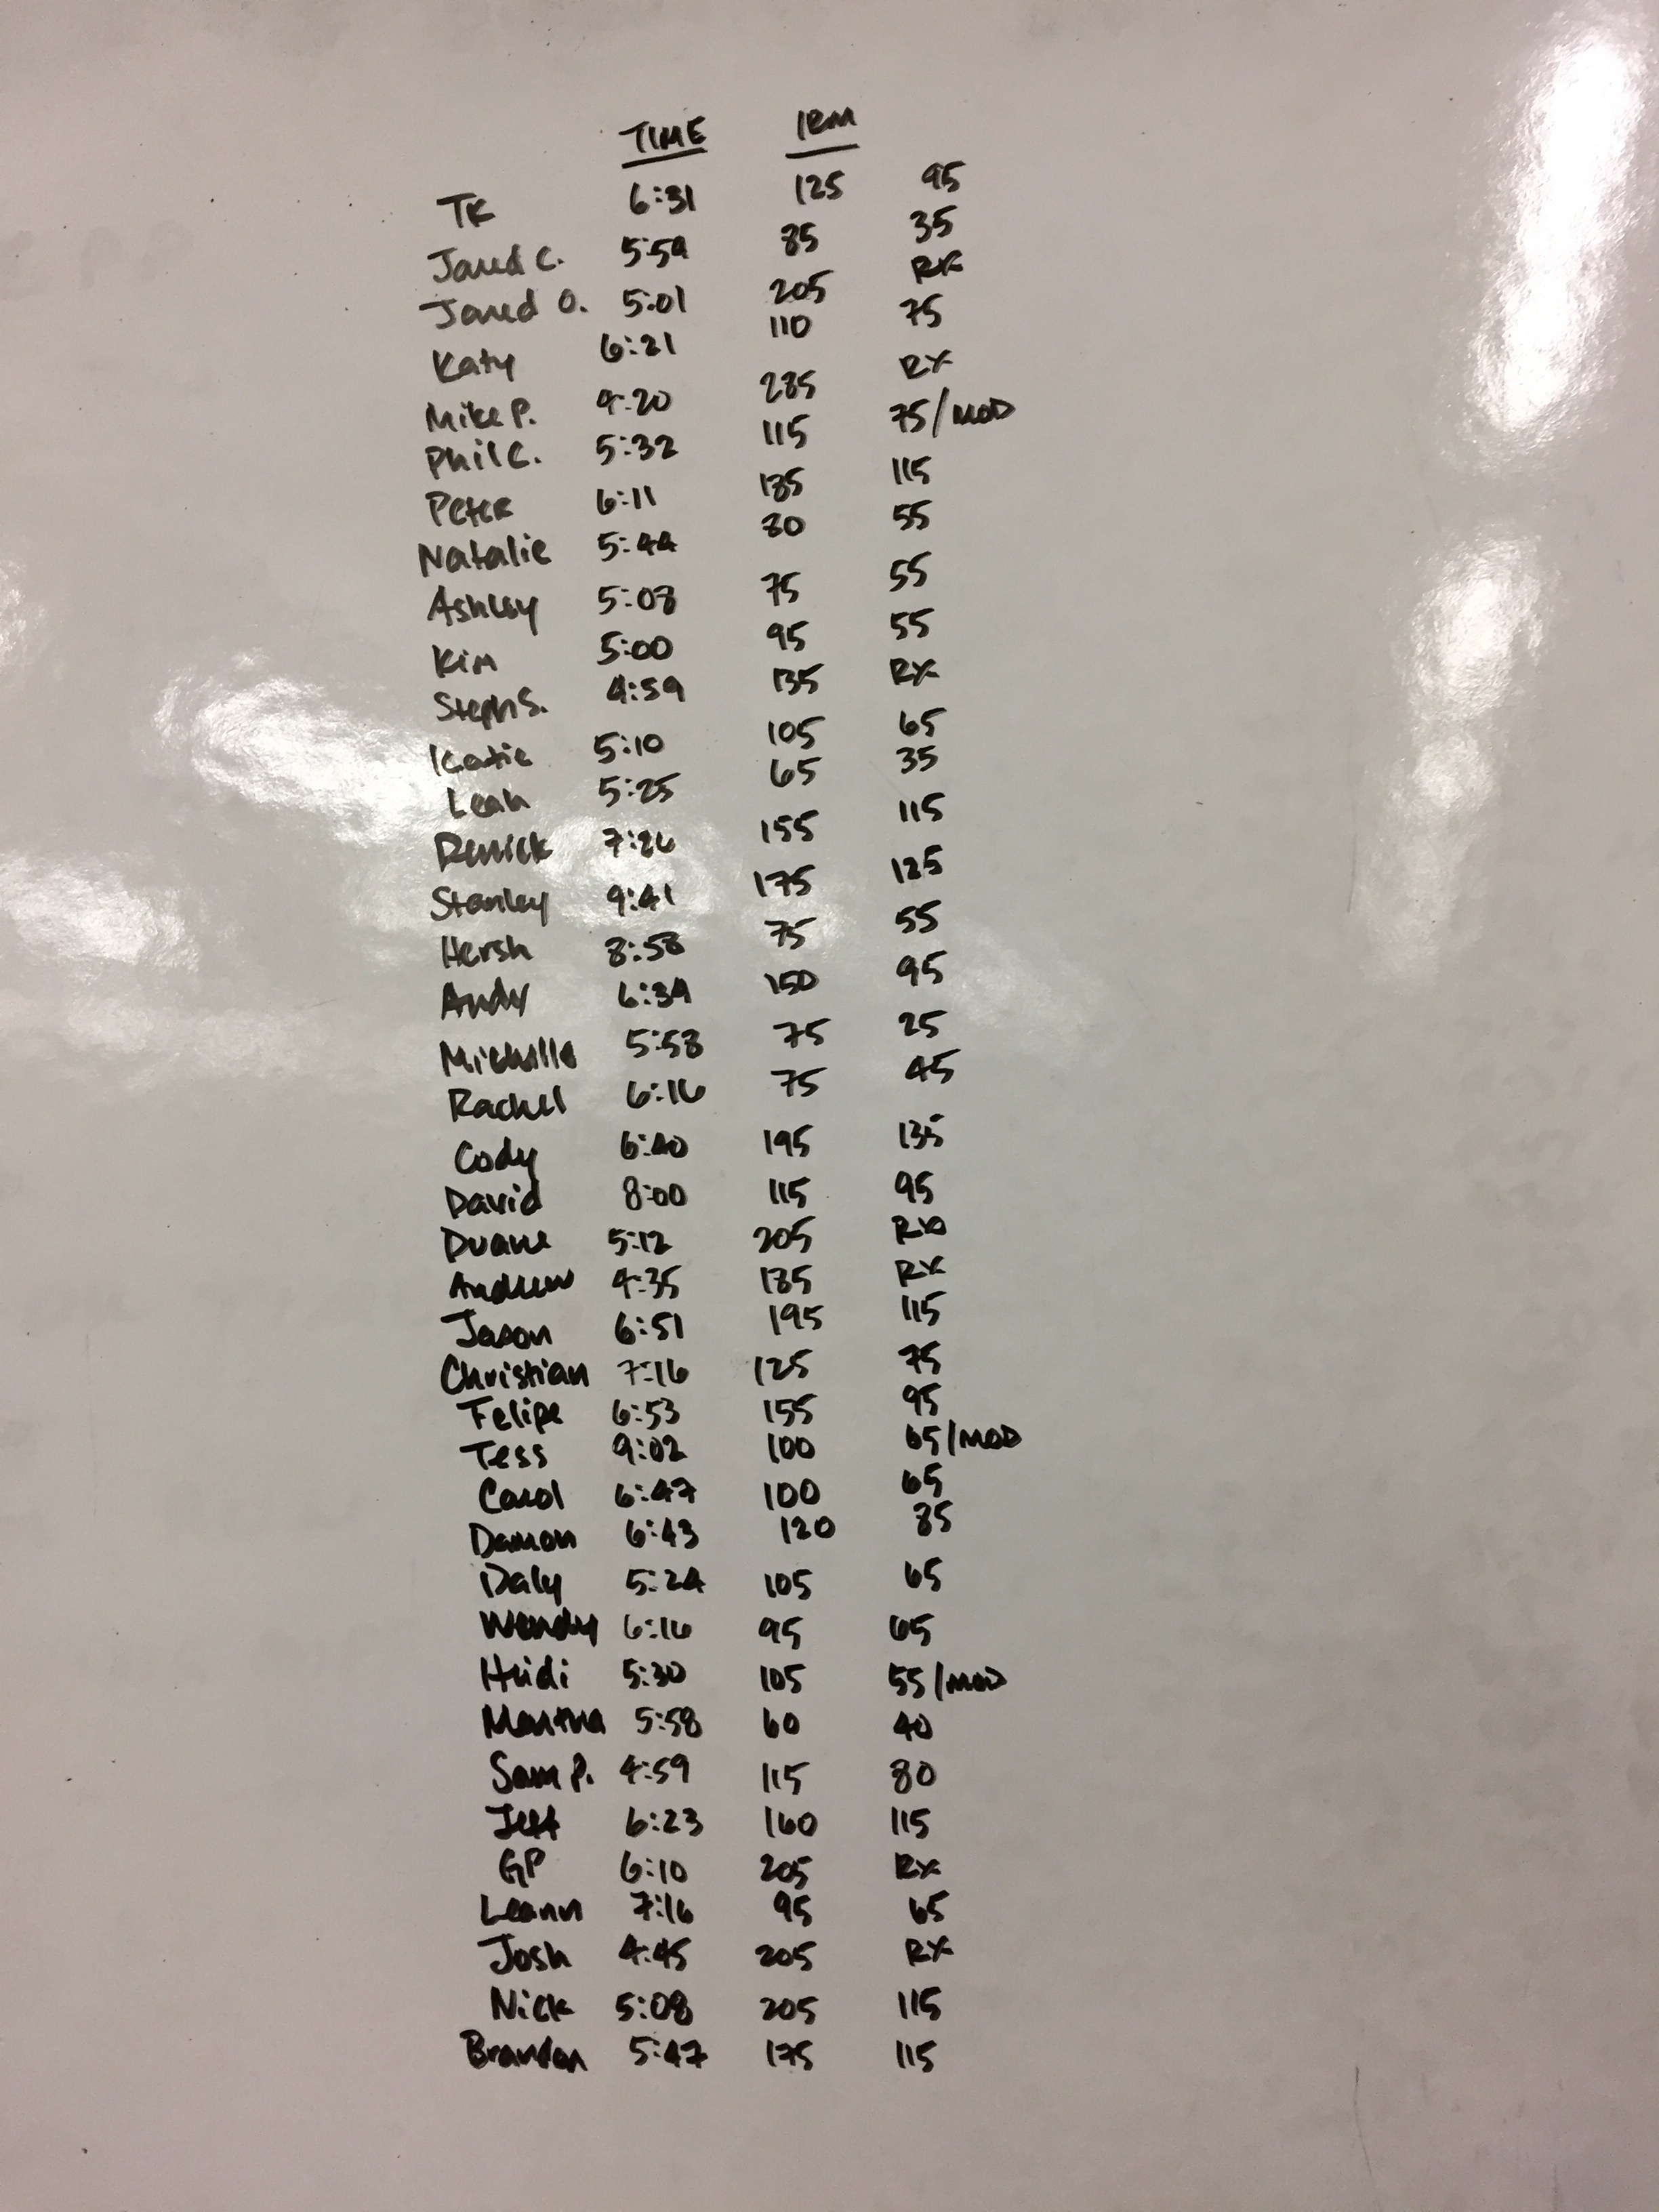 TIME 1RM
TK 6:31 125 95
Jared C. 5:59 85 35
Jared O. 5:01 205 RX
Katy 6:21 110 75
Mike P. 4:20 285 RX
Phil C. 5:32 115 75/MOD
Peter 6:11 185 115
Natalie 5:44 80 55
Ashley 5:08 75 55
Kim 5:00 95 55
Steph S. 4:59 135 RX
Katie 5:10 105 65
Leah 5:25 65 35
Derrick 7:26 155 115
Stanley 9:41 175 125
Hersh 8:58 75 55
Andy 6:39 150 95
Michelle 5:58 75 25
Rachel 6:16 75 45
Cody 6:40 195 135
David 8:00 115 95
Duane 5:12 205 RX
Andrew 4:35 185 RX
Jason 6:51 195 115
Christian 7:16 125 75
Felipe 6:53 155 95
Tess 9:02 100 65/MOD
Carol 6:47 100 65
Damon 6:43 120 85
Daly 5:24 105 65
Wendy 6:16 95 65
Heidi 5:30 105 55/MOD
Martha 5:58 60 40
Sam P. 4:59 115 80
Jeff 6:23 160 115
GP 6:10 205 RX
Leann 7:16 95 65
Josh 4:45 205 RX
Nick 5:08 205 115
Brandon 5:47 175 115